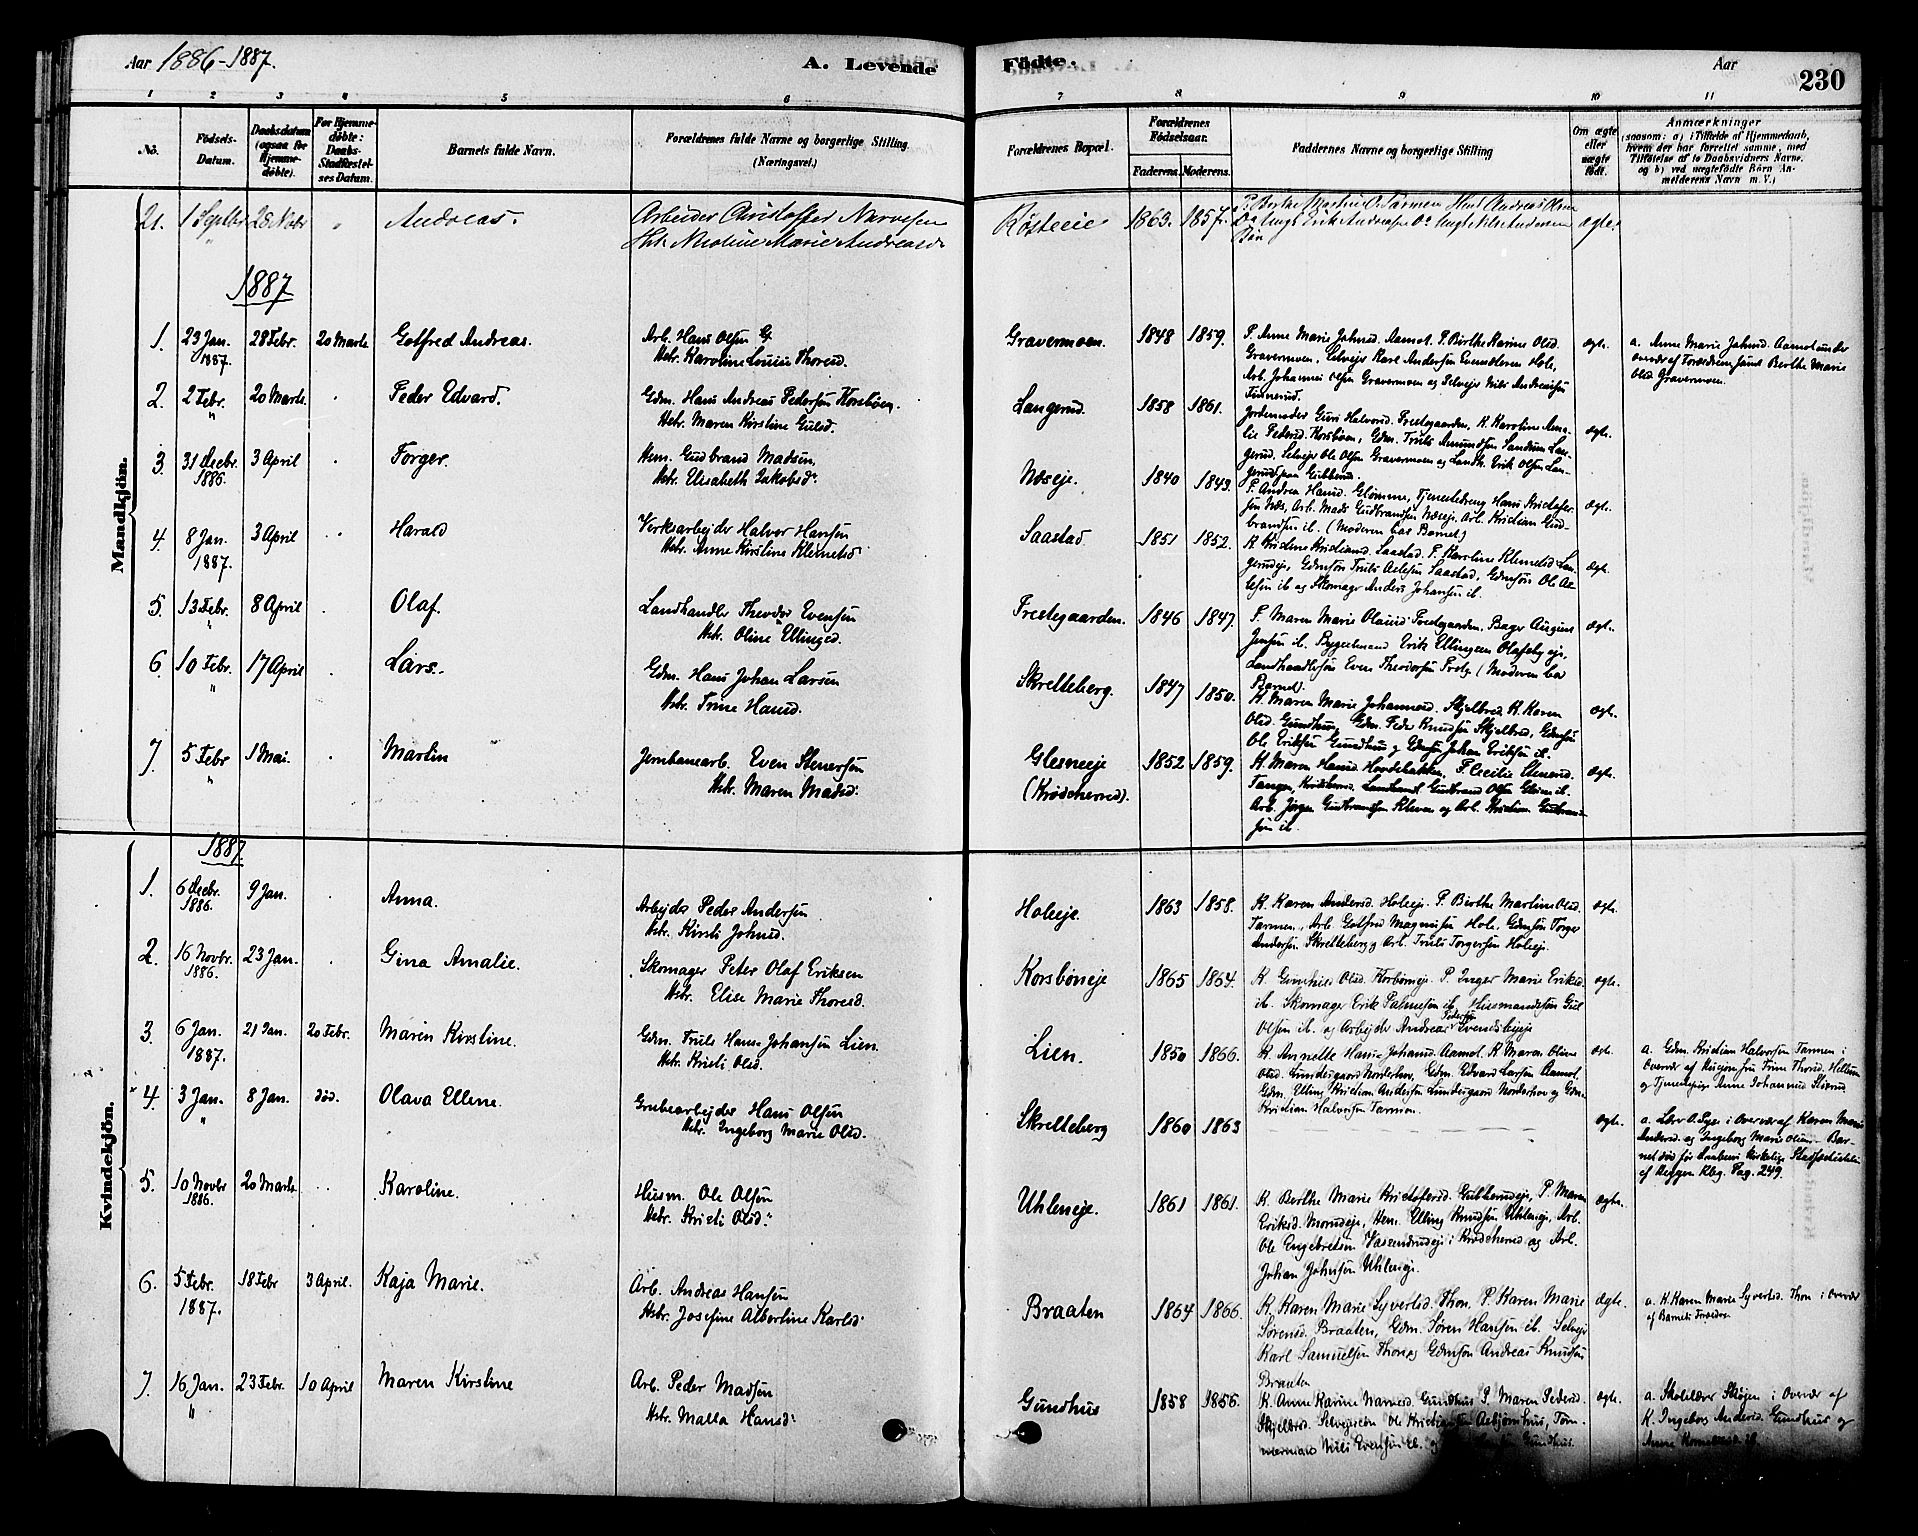 Aar 1886-1887.
A. Levende Fødte.
Aar
230
1 2 3 4 5 6 7 8 9 10 11
No.
Fødsels-Datum.
Daabsdatum (ogsaa for Hjemmedøbte).
For Hjemmedøbte: Daabs-Stadfæstelses Datum.
Barnets fulde Navn.
Forældrenes fulde Navne og borgerlige Stilling (Næringsvei.)
Forældrenes Bopæl.
Forældrenes Fødselsaar.
Faderens. Moderens.
Faddernes Navne og borgerlige Stilling
Om ægte eller uægte født.
Anmærkninger
(saasom: a) i Tilfælde af Hjemmedaab, hvem der har forrettet samme, med Tilføielse af to Daabsvidners Navne, og b) ved uægtefødte Børn Anmelderens Navn m. V.)
21. 1 Septbr 28 Novbr " Andreas. Arbeider Christoffer Narvesen
Hst. Nicoline Marie Andreasd. Røsteeie 1863. 1857. ægte.
Mandkjön.
1887
1. 23 Jan. 1887. 28 Febr. 20 Marts Gotfred Andreas. Arb. Hans Olsen G
Hstr. Karoline Louise Thoresd. Gravermoen. 1848 1859. P. Anne Marie Johnsd. Aamot. P. Berthe Karine Olsd.
Gravermoen, Selvejer Karl Andersen Hole,
Arb. Johannes Olsen Gravermoen og Selvejer Nils Andreassen
Finnerud. ægte. a. Anne Marie Johnsd. Aamot under
Overvær af Forældrene samt Berthe Marie
Olsd Gravermoen.
2. 2 Febr. " 20 Marts . Peder Edvard. Gdm. Hans Andreas Pedersen Korsbøen.
Hstr. Maren Kirstine Gulsd. Langerud. 1858 1861. Jordemoder Guri Halvorsd. Prestegaarden. K. Karoline Amalie
Pedersd. Korsbøen, Gdm. Truls Amundsen Langerud,
Selvejer Ole Olsen Gravermoen og Landh. Erik Olsen ægte.
3. 31 Decbr. 1886. 3 April . Torger. Hsm. Gudbrand Madsen,
Hstr. Elisabeth Jakobsd. Næseje. 1840 1843. P. Andrea Hansd. Glømme, Tjenestedreng Hans Kristofersen
Næs, Arb. Mads Gudbrandsen Næseje. Arb. Kristian Gudbrandsen
ib. (Moderen bar Barnet) ægte.
4. 8 Jan. 1887. 3 April . Harald Verksarbejder Halvor Hansen
Hstr. Anne Kirstine Klemetsd. Saastad 1851 1852. K. Kristine Kristiansd. Saastad. P. Karoline Klemetsd. Langerudeje,
Gdmsøn Truls Saastad, Gdmsøn Ole
ib og Skomager Anders Johansen ib. ægte.
5. 13 Febr. " 8 April . Olaf. Landhandler Theodor Evensen
Hstr. Oline Ellingsd. Prestegaarden. 1846 1847. P. Maren Marie Olausd Prestegaarden. Bager August
Jensen ib. Byggelmand Erik Ellingsen Olafsbyeje,
Landhandlersøn Even Theodorsen Prstg. (Moderen bar
Barnet). ægte.
6. 10 Febr. " 17 April . Lars. Gdm. Hans Johan Larsen
Hstr. Trine Hansd. Skrelleberg. 1847 1850. K. Maren Marie Johannesd. Skjelbred, K. Karen
Olsd. Gundhus, Gdm. Peder Knudsen Skjelbred, Gdmsøn
Ole Eriksen Gundhus og Gdmsøn Johan Eriksen ib. ægte.
7. 5 Febr " 1 Mai. . Martin Jernbanearb. Even Stenersen
Hstr. Maren Madsd. Glesneeje (Krødsherred). 1852 1859. K. Maren Hansd. P. Cecilie Stenersd.
Tangen, Krødsherred, Gudbrand Olsen Glesne ib.
Arb. Jørgen Gudbrandsen og Arb. Kristian Gudbrandsen
ib. ægte.
Kvindekjön.
1887
1. 6 Decbr. 1886. 9 Jan. Anna. Arbejder Peder Andersen
Hstr. Kirsti Johnsd. Holeeje. 1863 1858. K. Karen Andersd. Holeeje. P. Berthe Martine Olsd.
Tarmen, Arb. Gotfred Magnussen Hole, Gdmsøn Torger
Andersen Skrelleberg og Arb. Truls Torgersen Holeeje. ægte.
2. 16 Novbr. 1886. 23 Jan. . Gina Amalie. Skomager Peter Olaf Eriksen
Hstr. Elise Marie Thoresd. Korsbøneje 1865 1864. K. Gunhild Olsd. Korsbøneje P. Inger Marie Eriksd.
ib. Skomager Erik Palmesen ib. Husmandssøn Gul
Olsen ib. og Arbejder Andreas Pedersen Svendsbyeje ægte.
3. 6 Jan. 1887. 21 Jan. 20 Febr. Maren Kirstine. Gdm. Truls Hans Johansen Lien.
Hstr. Kristi Olsd. Lien. 1850 1866. K. Annette Hans Johansd. Aamot. K. Maren Oline
Olsd. Lundesgaard Norderhov, Gdm. Edvard Larsen Aamot,
Gdm. Elling Kristian Andersen Lundesgaard Norderhov og Gdm.
Kristian Halvorsen Tarmen. ægte. a. Gdm. Kristian Halvorsen Tarmen i
Overvær af Trine Thorsd.
og Tjenestepige Anne Johannesd
4. 3 Jan. " 8 Jan. død. Olava Ellene. Grubearbejder Hans Olsen
Hstr. Ingeborg Marie Olsd. Skrelleberg 1860 1863 ægte. a. Lærer O. Sype i Overvær af Karen Marie
Andersd. og Ingeborg Marie Olsen. Barnet
død før Daabens Kirkelige Stadfæstelse
cf Heggen Kbg. Pag. 249.
5. 10 Novbr 1886. 20 Marts .. Karoline. Husm. Ole Olsen
Hstr. Kristi Olsd. Uhleneje. 1861 1861. K. Berthe Marie Kristofersd. Gubberudeje, P. Maren
Eriksd. Morudeje, Hsm. Elling Knudsen Uhleneje, Arb.
Ole Engebretsen Vassendrudeje i Krødsherred og Arb.
Johan Johnsen Uhleneje. ægte
6. 5 Febr. 1887. 18 Febr 3 April. Kaja Marie. Arb. Andreas Hansen
Hstr. Josefine Albertine Karlsd. Braaten 1864 1866. K. Karen Marie Syvertsd. Thon. P. Karen Marie
Sørensd. Braaten, Gdm. Søren Hansen ib. Selvejer
Karl Samuelsen Thon og Gdmsøn Andreas Knudsen
Braaten ægte. a. K. Karen Marie Syvertsd. Thon i Overvær
af Barnets Forældre.
7. 16 Jan. " 23 Febr. 10 April Maren Kirstine Arb. Peder Madsen
Hstr. Malla Hansd. Gundhus 1858 1856. K. Anne Karine Narvesd. Gundhus P. Maren Pedersd.
Skjelbred. Selvejersøn Ole Kristiansen Asbjørnhus, Tømmermand
Nils Evensen ib. Gundhus. ægte. a. Skolelærer Skøjen i Overvær af
K. Ingeborg Andersd. Gundhus og
Anne ib.